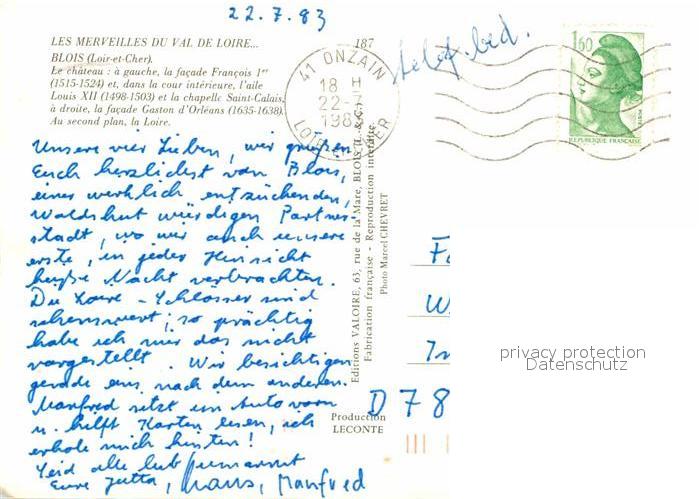 22.7.83
LES MERVEILLES DU VAL DE LOIRE...
187
BLOIS (Loir-et-Cher).
Le château : à gauche, la façade François 1er
(1515-1524) et, dans la cour intérieure, l'aile
Louis XII (1498-1503) et la chapelle Saint-Calais,
à droite, la façade Gaston d'Orléans (1635-1638).
Au second plan, la Loire.
41 ONZAIN
18 H
22-7
1983
LOIR-ET-CHER
1,60
REPUBLIQUE FRANÇAISE
Unsere vier Lieben, wir grüßen
Euch herzlichst von Blois,
eines wirklich entzückenden,
Waldshut würdigen Partner-
stadt, wo wir auch unsere
erste, in jeder Hinsicht
heiße Nacht verbrachten.
Die Loire-Schlösser sind
sehenswert; so prächtig
habe ich mir das nicht
vorgestellt. Wir besichtigen
gerade eins nach dem anderen.
Manfred sitzt im Auto vorn
u. hilft Karten lesen, ich
erhole mich hinten!
Seid alle lieb umarmt
Eure Jutta, Hans, Manfred
Editions VALOIRE, 63, rue de la Mare, BLOIS (L. & C.)
Fabrication française - Reproduction interdite
Photo Marcel CHEVRET
Production
LECONTE
F
W
D 78
privacy protection
Datenschutz